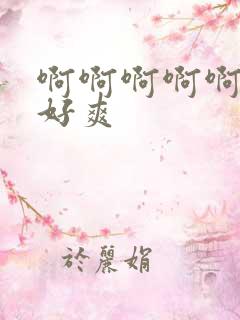 啊啊啊啊啊
好爽
於麗娟